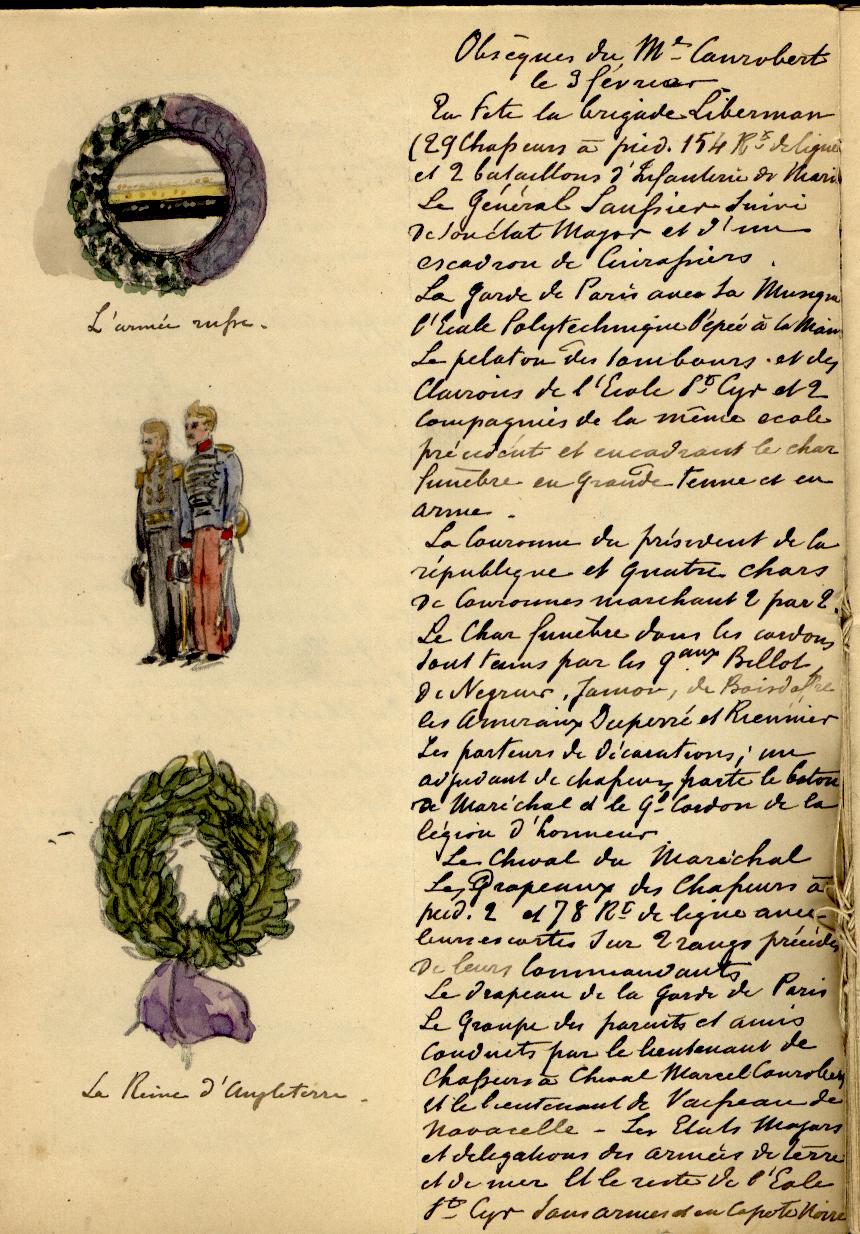 L'armée russe.
La Reine d'Angleterre.
Obsèques du Mal Canrobert
le 3 février
En tete la brigade Liberman
(29 Chasseurs à pied. 154 Rt de ligne
et 2 bataillons d'Infanterie de Mari
Le Général Saussier suivi
de son état Major et d'un
escadron de Cuirassiers.
La garde de Paris avec sa Musique
l'Ecole Polytechnique l'épée à la Main
Le peloton des tambours et des
Clairons de l'Ecole St Cyr et 2
Compagnies de la même ecole
précédent et encadrant le char
funèbre en Grande tenue et en
arme.
La Couronne du président de la
république et quatre chars
de Couronnes marchant 2 par 2.
Le Char funèbre dans les cordons
sont tenus par les gaux Billot,
de Negrier, Jamon, de Boisdeffre
les Amiraux Duperré et Rieunier
Les porteurs de Décorations; un
adjudant de chasseurs porte le baton
de Maréchal et le Gd Cordon de la
légion d'honneur
Le Cheval du Maréchal
Les Drapeaux des Chasseurs à
pied. 2 et 78 Rt de ligne avec
leurs escortes sur 2 rangs précédés
de leurs Commandants
Le drapeau de la garde de Paris
Le Groupe des parents et amis
conduits par le lieutenant de
Chasseurs à Cheval Marcel Canrobert
et le lieutenant de Vaisseau de
Navacelle - Les Etats Majors
et delegations des armées de terre
et de mer Et le reste de l'Ecole
St Cyr sans armes et en Capote Noire